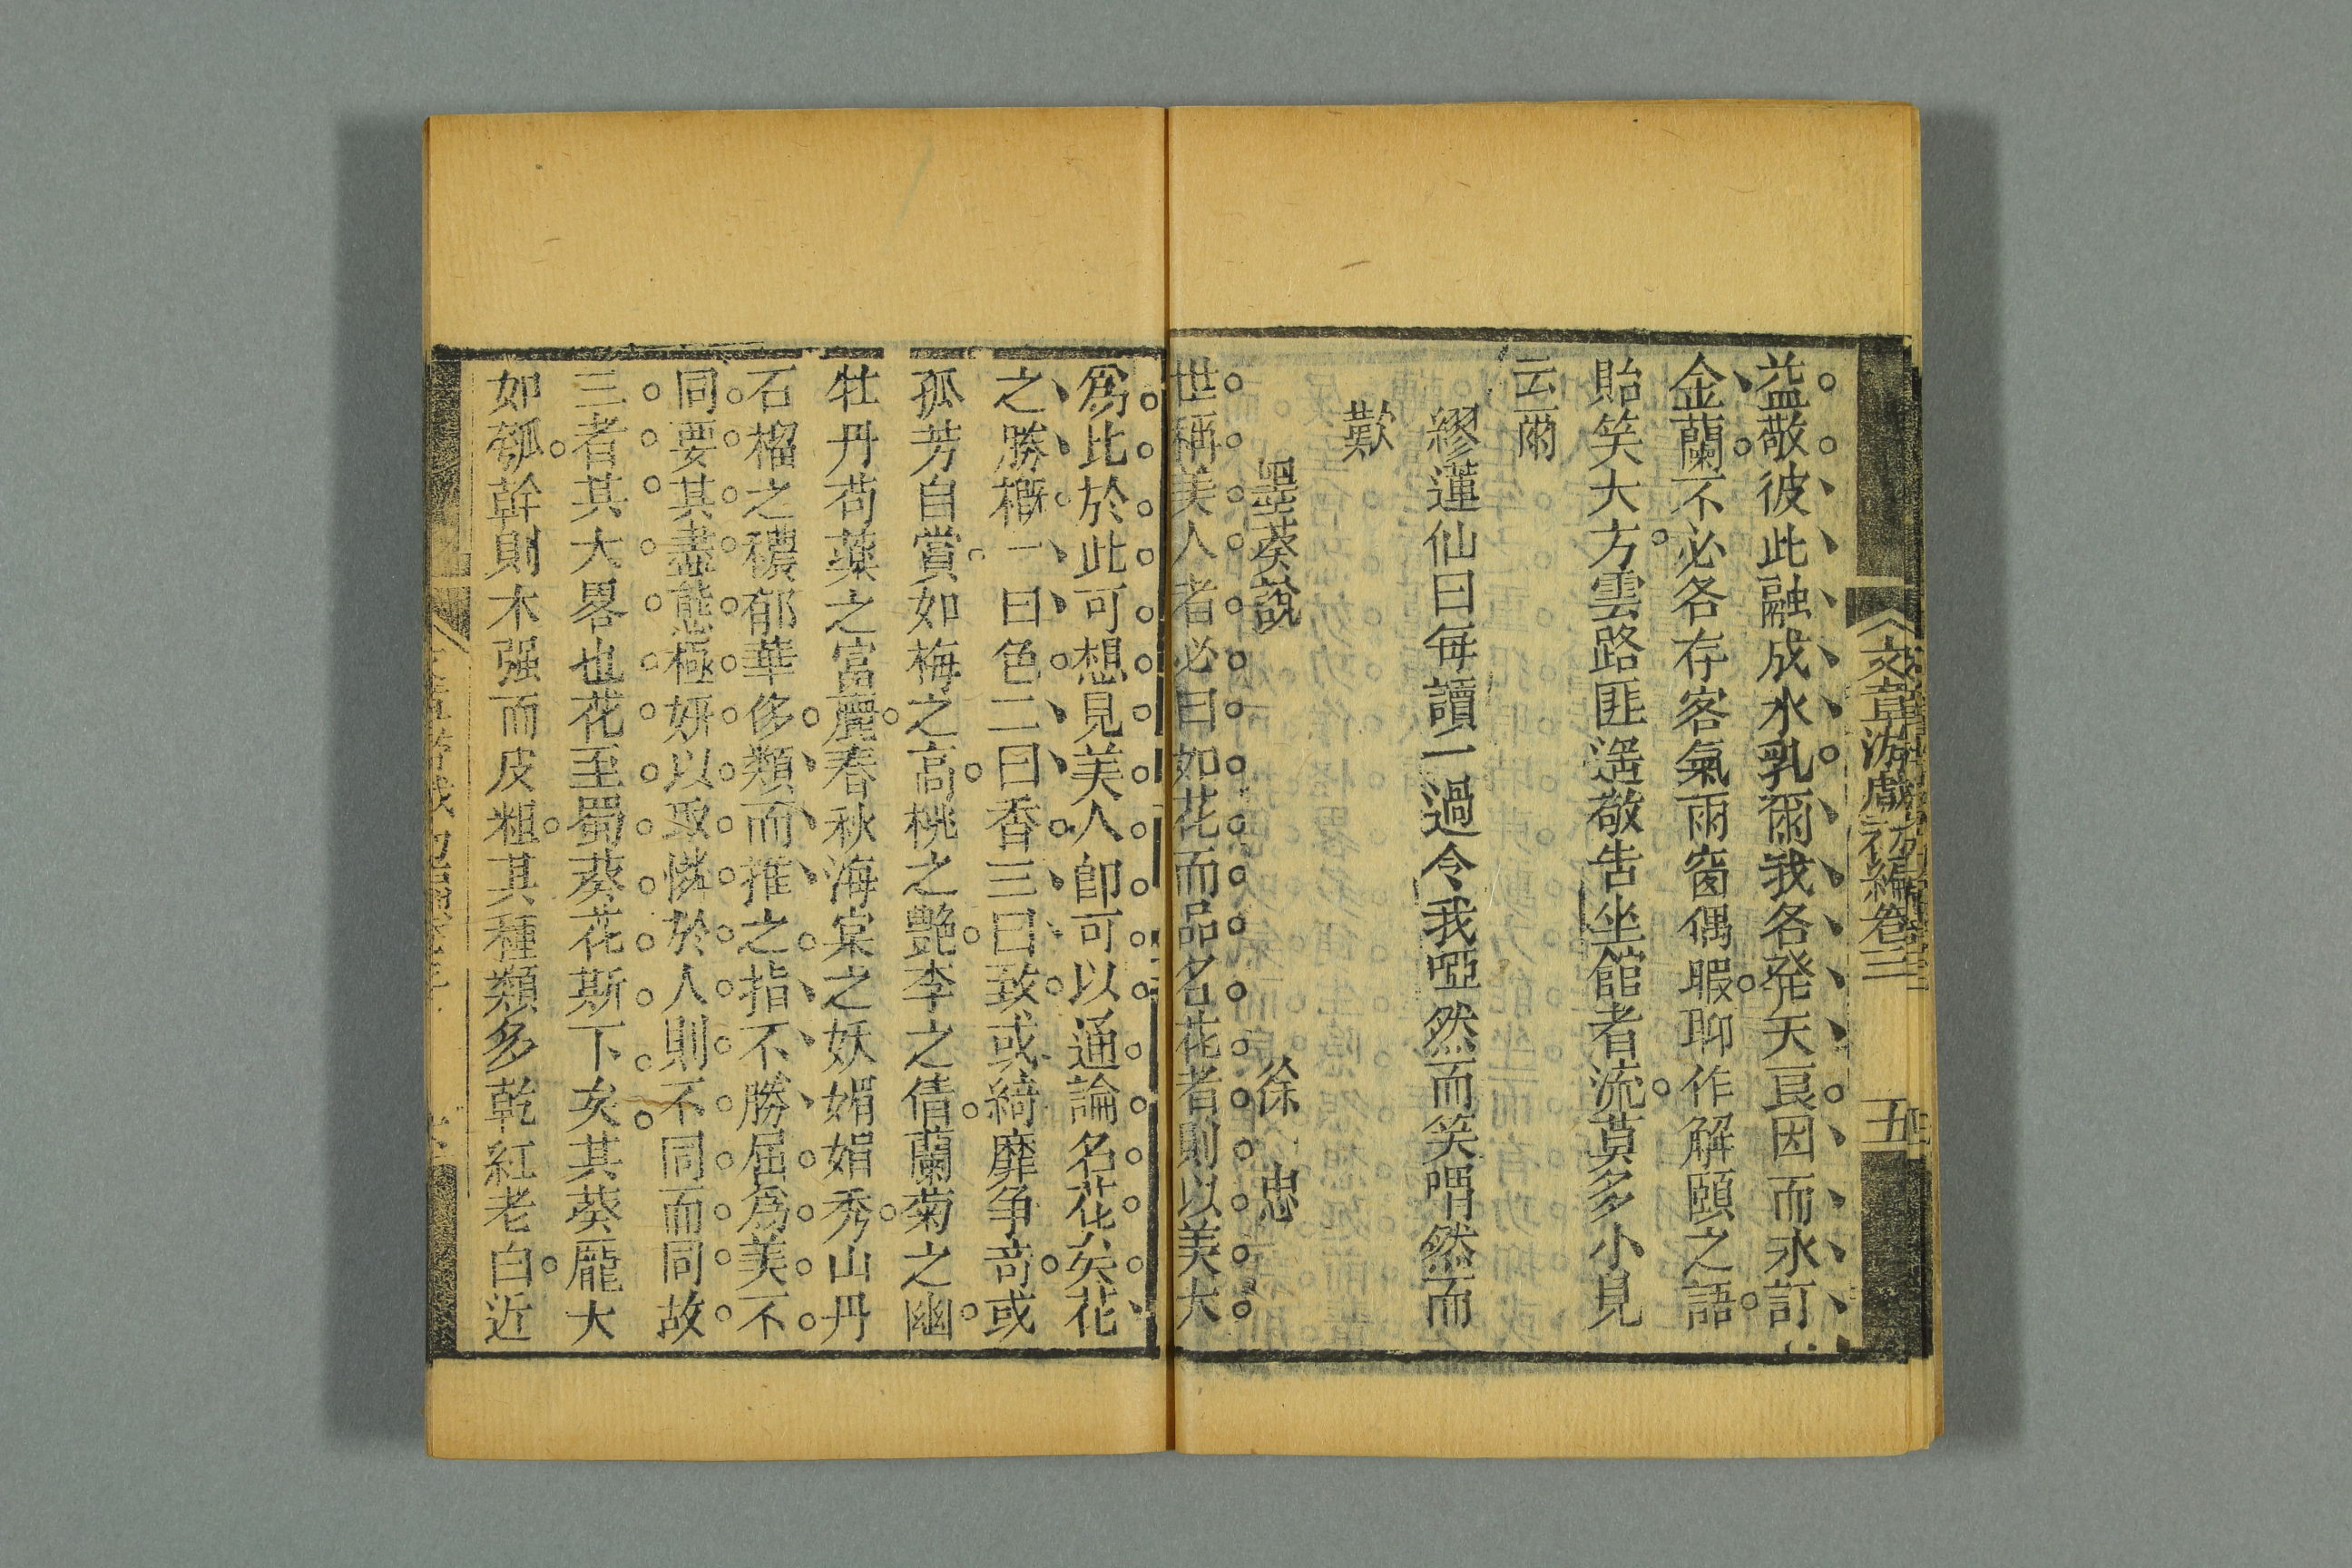 文章游戲初編卷三
五
益敬彼此融成水乳爾我各發天良因而永訂
金蘭不必各存客氣雨窗偶暇聊作解頤之語
貽笑大方雲路匪遥敬告坐館者流莫多小見
云爾
繆蓮仙曰每讀一過令我啞然而笑喟然而
歎
墨葵說 徐忠
世稱美人者必曰如花而品名花者則以美大
爲比於此可想見美人卽可以通論名花矣花
之勝槪一曰色二曰香三曰致或綺靡争竒或
孤芳自賞如梅之高桃之艷李之倩蘭菊之幽
牡丹芍藥之富麗春秋海棠之妖娟娟秀山丹
石榴之穠郁華侈類而推之指不勝屈爲美不
同要其盡態極妍以取憐於人則不同而同故
三者其大畧也花至蜀葵花斯下矣其葵龐大
如瓠幹則木强而皮粗其種類多乾紅老白近